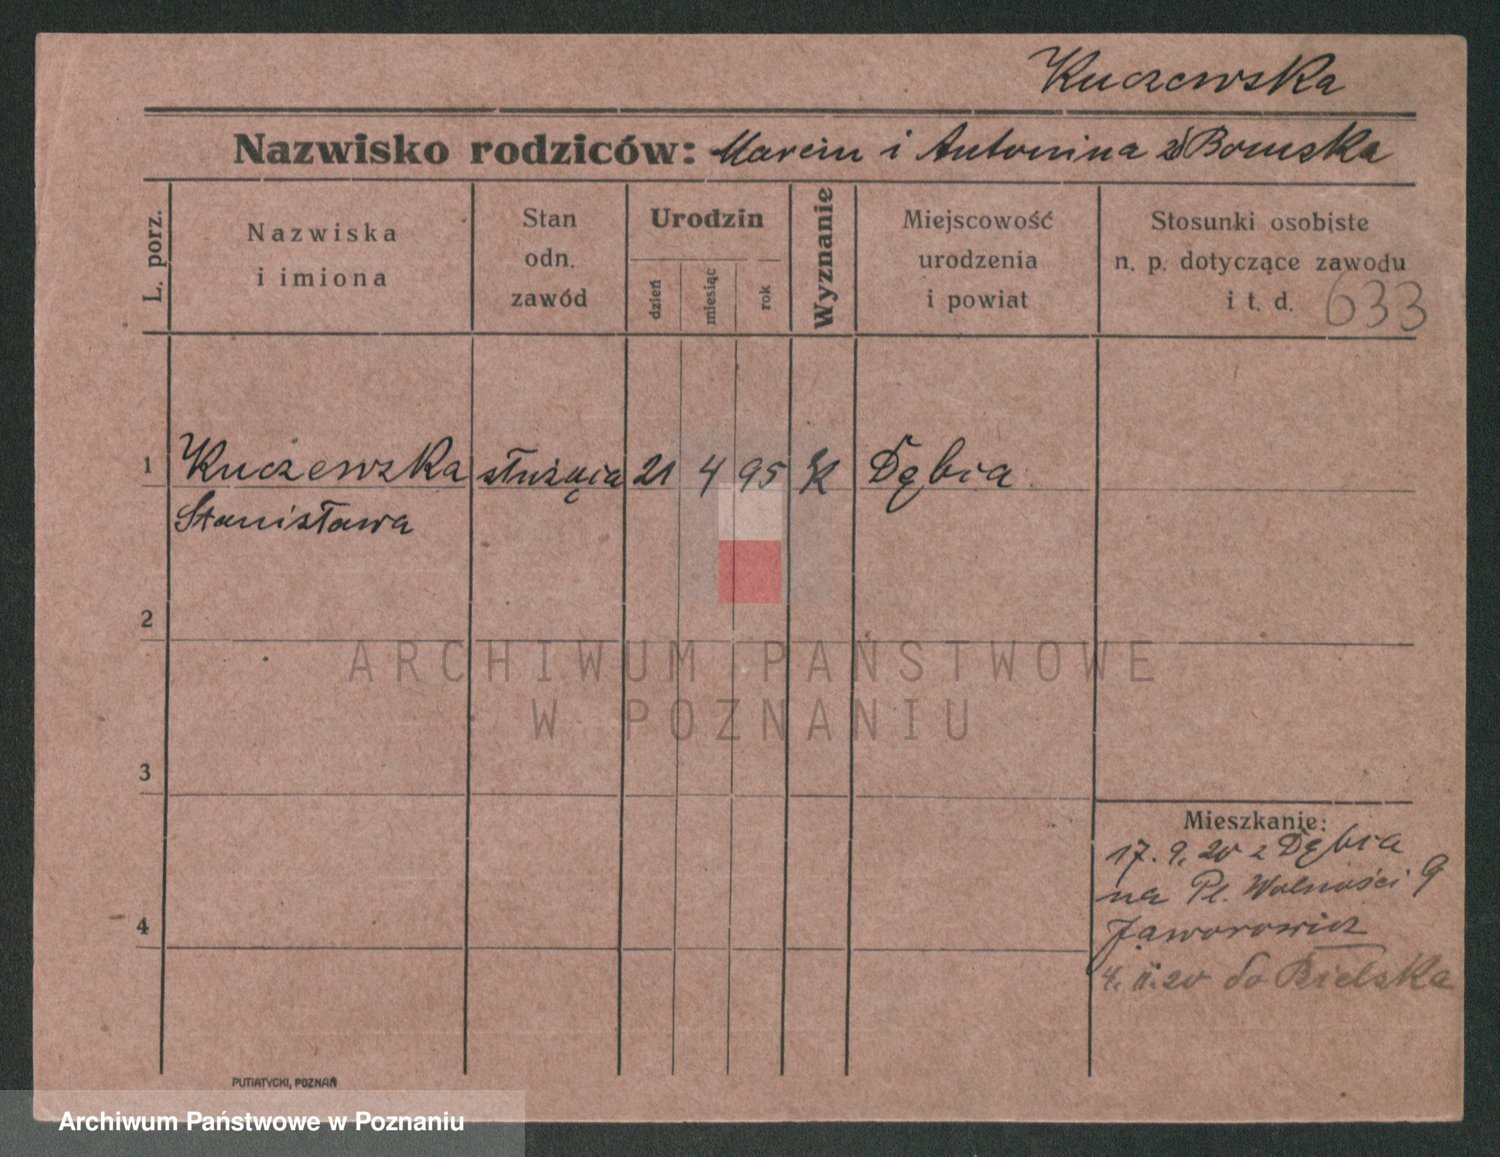 Kuczewska
Nazwisko rodziców: Marcin i Antonina z
L. porz.
Nazwiska
i imiona
Stan
odn.
zawód
Urodzin
dzień
miesiąc
rok
Wyznanie
Miejscowość
urodzenia
i powiat
Stosunki osobiste
n. p. dotyczące zawodu
i t. d. 633
1 Kuczewska służąca 21 4 95 K Dębia
Stanisława
2
3
4
Mieszkanie:
17. 9. 20 z Dębia
na Pl. Wolności 9
Jaworowicz
4. 11. 20 do Bielska
PUTIATYCKI, POZNAŃ
ARCHIWUM PAŃSTWOWE
W POZNANIU
Archiwum Państwowe w Poznaniu